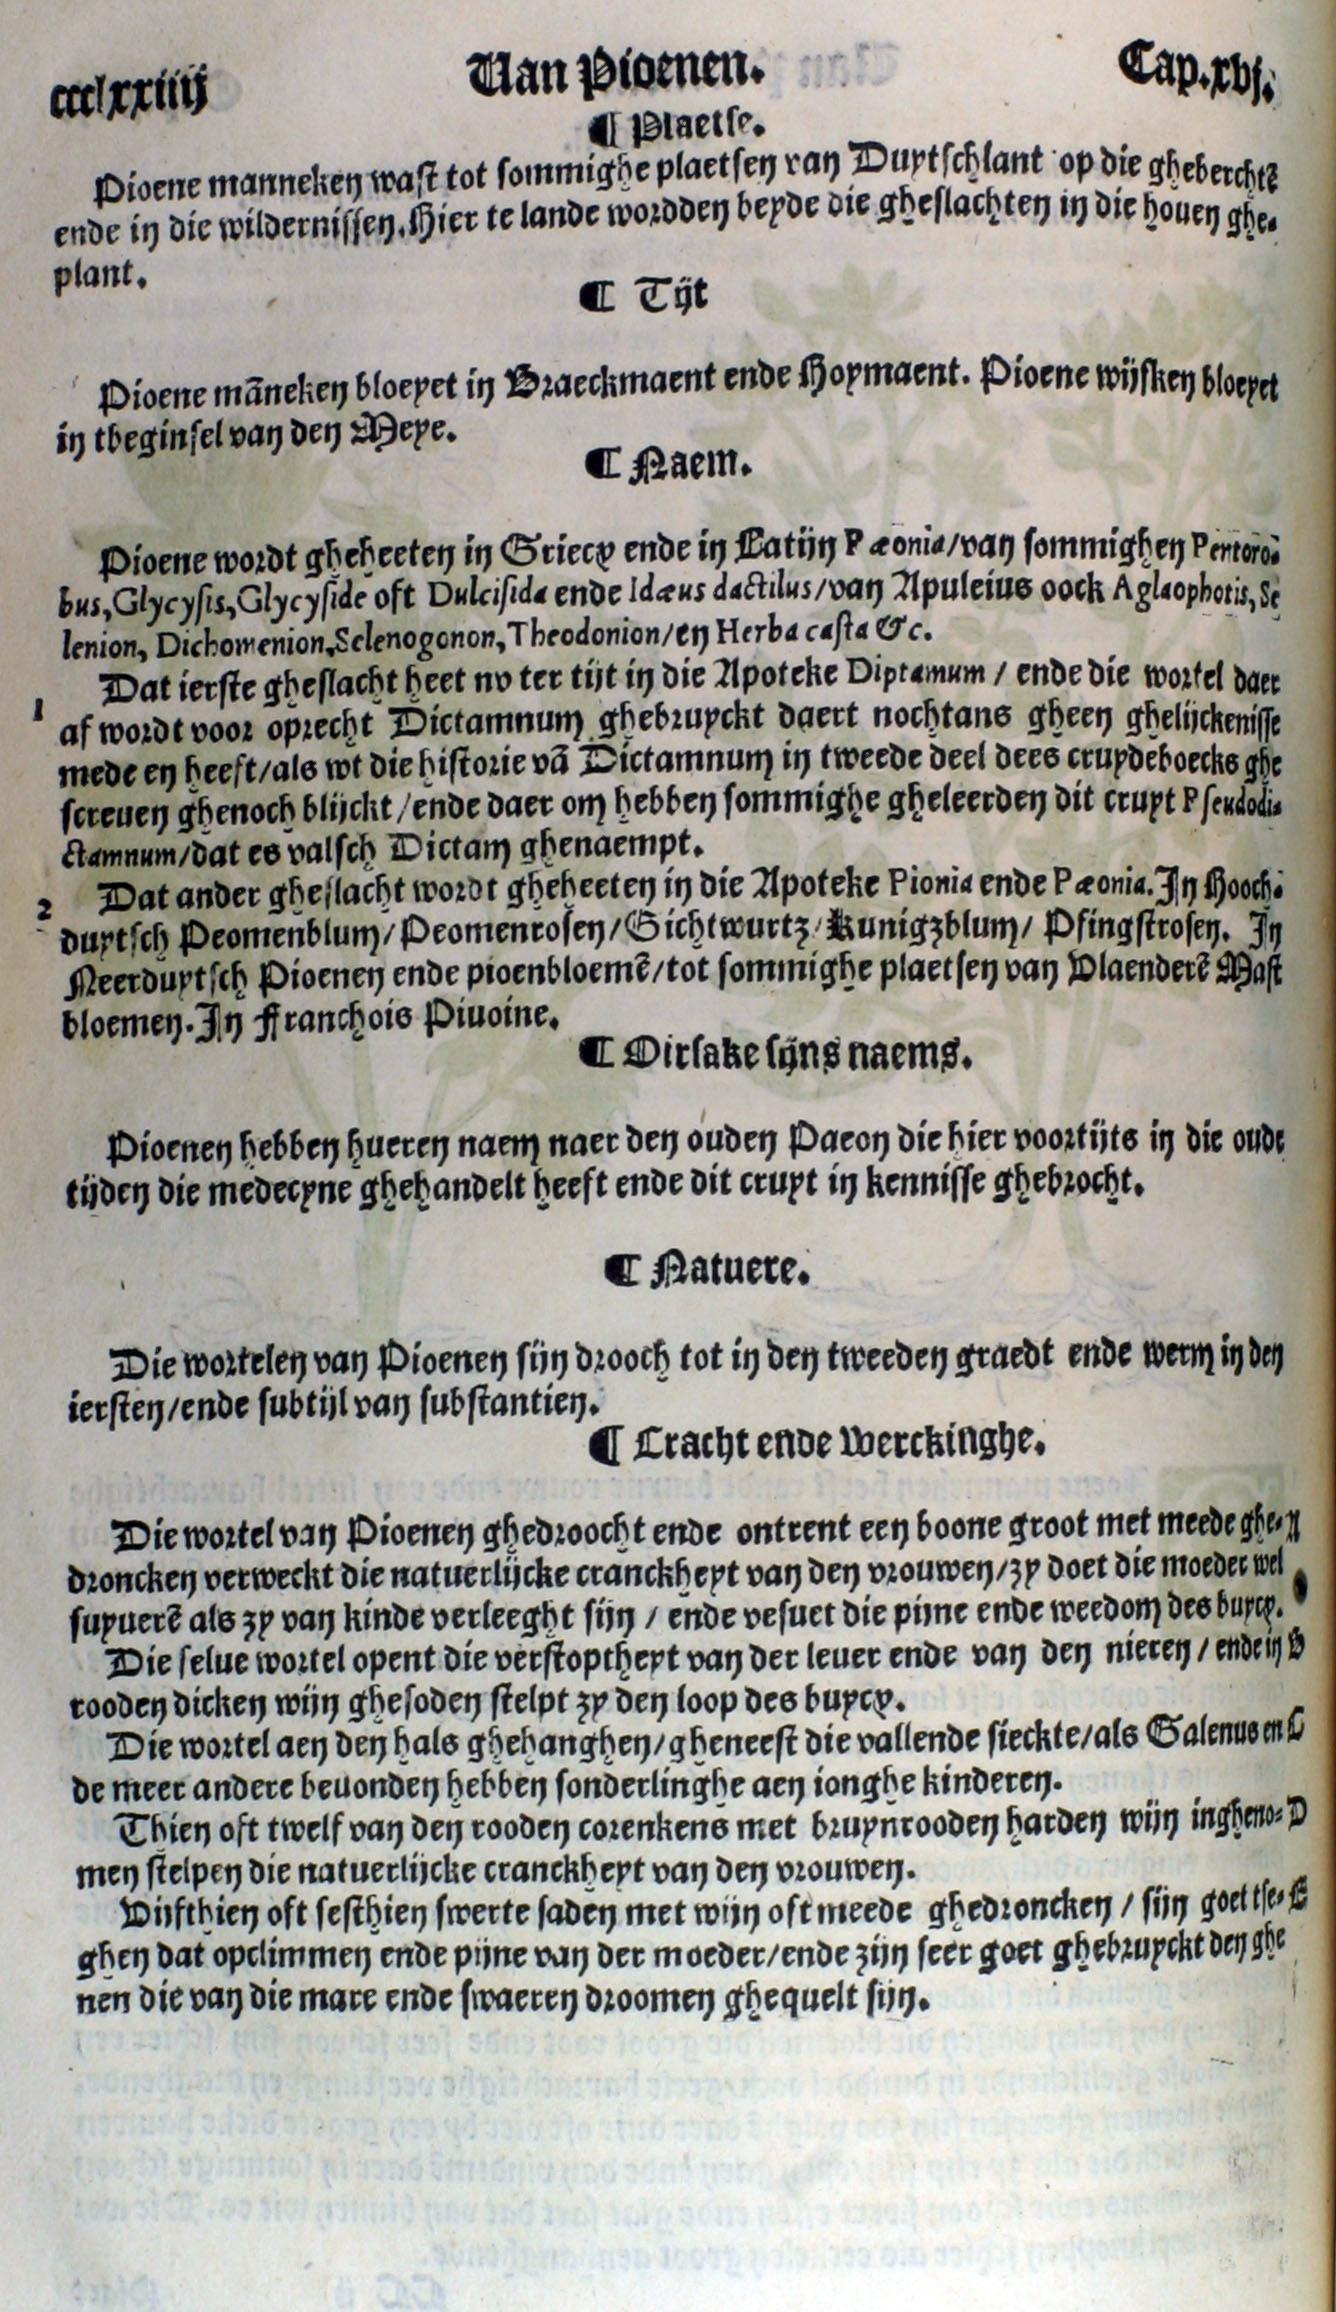 ccclxxiiij Van Pioenen. Cap.xvj.
¶ Plaetse.
Pioene manneken wast tot sommighe plaetsen van Duytschlant op die gheberchtẽ
ende in die wildernissen. Hier te lande wordden beyde die gheslachten in die houen ghe-
plant.
¶ Tijt
Pioene mãneken bloeyet in Braeckmaent ende Hoymaent. Pioene wijfken bloeyet
in tbeginsel van den Meye.
¶ Naem.
Pioene wordt gheheeten in Griecx ende in Latijn Pæonia/van sommighen Pentoro-
bus, Glycysis, Glycyside oft Dulcisida ende Idæus dactilus/van Apuleius oock Aglaophotis, Se
lenion, Dichomenion, Selenogonon, Theodonion/en Herba casta &c.
1 Dat ierste gheslacht heet nv ter tijt in die Apoteke Diptamum / ende die wortel daer
af wordt voor oprecht Dictamnum ghebruyckt daert nochtans gheen ghelijckenisse
mede en heeft/als wt die historie vã Dictamnum in tweede deel dees cruydeboecks ghe
screuen ghenoch blijckt/ende daer om hebben sommighe gheleerden dit cruyt Pseudodi-
ctamnum/dat es valsch Dictam ghenaempt.
2 Dat ander gheslacht wordt gheheeten in die Apoteke Pionia ende Pæonia. In Hooch-
duytsch Peomenblum/Peomenrosen/Gichtwurtz/Kunigzblum/ Pfingstrosen. In
Neerduytsch Pioenen ende pioenbloemẽ/tot sommighe plaetsen van Vlaenderẽ Mast
bloemen. In Franchois Piuoine.
¶ Oirsake sijns naems.
Pioenen hebben hueren naem naer den ouden Paeon die hier voortijts in die oude
tijden die medecyne ghehandelt heeft ende dit cruyt in kennisse ghebrocht.
¶ Natuere.
Die wortelen van Pioenen sijn drooch tot in den tweeden graedt ende werm in den
iersten/ende subtijl van substantien.
¶ Cracht ende werckinghe.
Die wortel van Pioenen ghedroocht ende ontrent een boone groot met meede ghe- A
droncken verweckt die natuerlijcke cranckheyt van den vrouwen/zy doet die moeder wel
suyuerẽ als zy van kinde verleeght sijn / ende versuet die pijne ende weedom des buycx.
Die selue wortel opent die verstoptheyt van der leuer ende van den nieren / ende in B
rooden dicken wijn ghesoden stelpt zy den loop des buycx.
Die wortel aen den hals ghehanghen/gheneest die vallende sieckte/als Galenus en C
de meer andere beuonden hebben sonderlinghe aen ionghe kinderen.
Thien oft twelf van den rooden corenkens met bruynrooden harden wijn ingheno- D
men stelpen die natuerlijcke cranckheyt van den vrouwen.
Vijfthien oft sesthien swerte saden met wijn oft meede ghedroncken / sijn goet tse- E
ghen dat opclimmen ende pijne van der moeder/ende zijn seer goet ghebruyckt den ghe
nen die van die mare ende swaeren droomen ghequelt sijn.